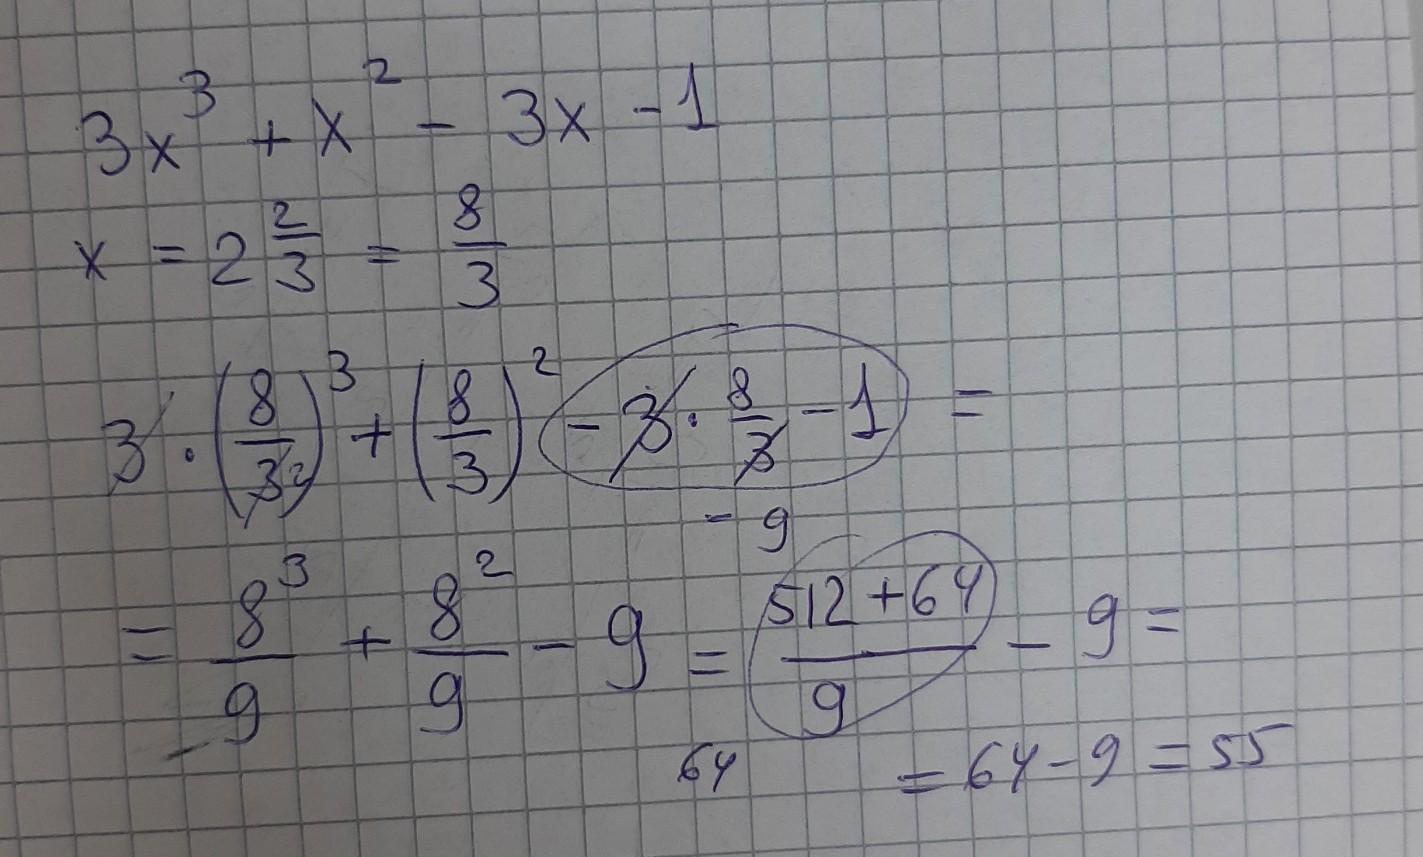 3x³ + x² - 3x - 1
x = 2 2/3 = 8/3
3 · (8/3²)³ + (8/3)² - 3 · 8/3 - 1 =
- 9
= 8³/9 + 8²/9 - 9 = (512 + 64)/9 - 9 =
64 = 64 - 9 = 55